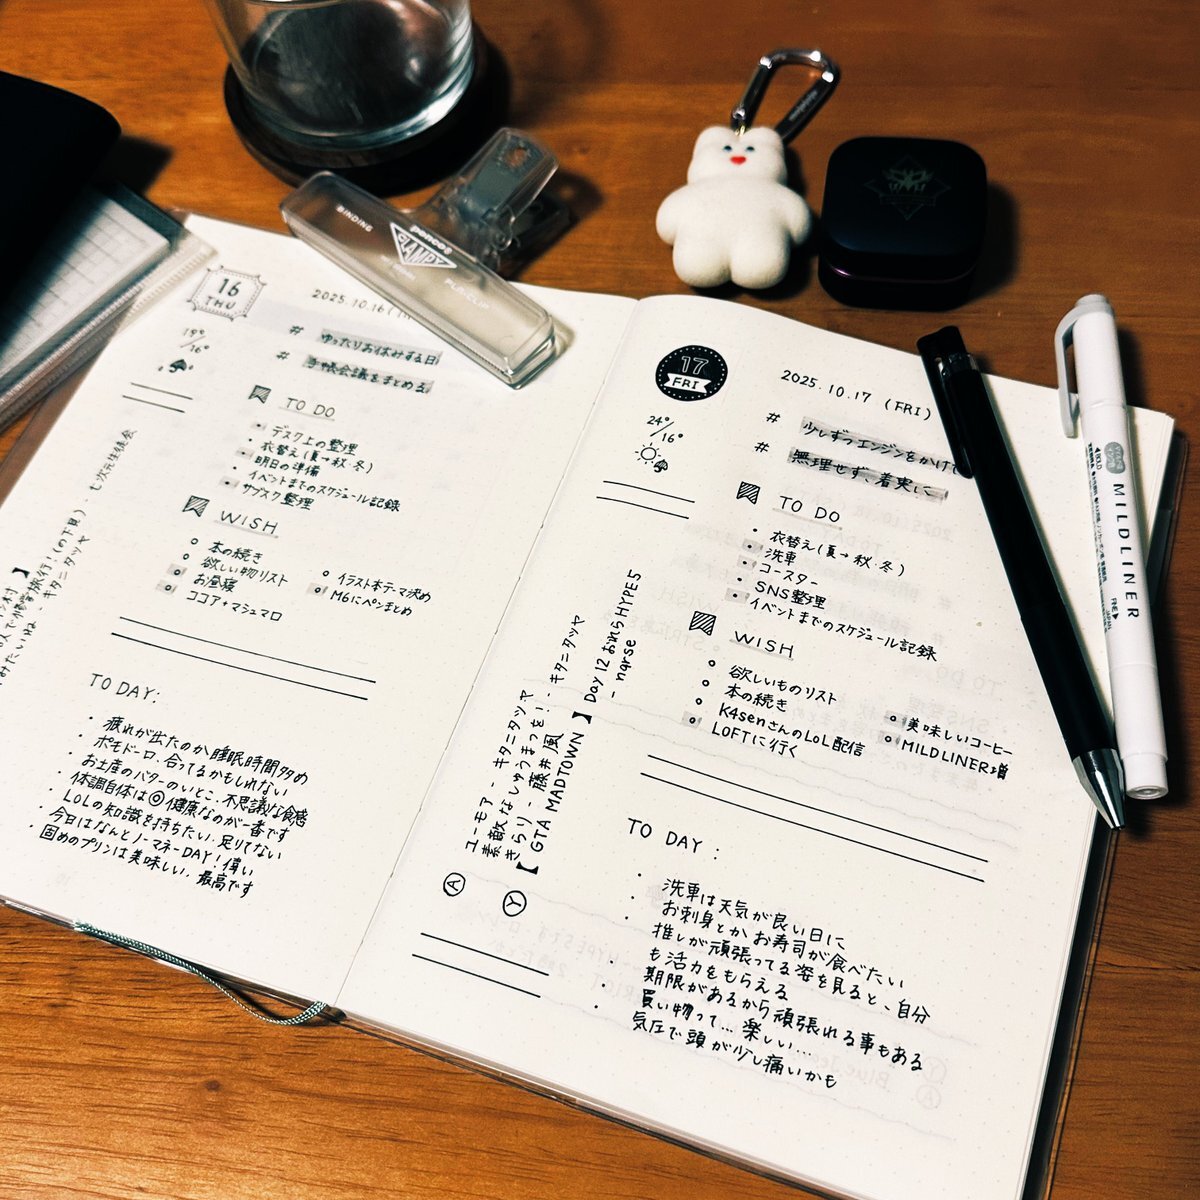 BINDING
penco
CLAMPY
PUSH CLIP
16
THU
2025.10.16
19°/16°
# ゆったりお休みする日
# 手帳会議をまとめる
TO DO
・デスク上の整理
・衣替え(夏→秋・冬)
・明日の準備
・イベントまでのスケジュール記録
・サブスク整理
WISH
本の続き
欲しい物リスト
お昼寝
ココア+マシュマロ
イラスト本テーマ決め
M6にペンまとめ
TO DAY:
・疲れが出たのか睡眠時間多め
・ポモドーロ、合ってるかもしれない
・お土産のバターのいとこ、不思議な食感
・体調自体は◎健康なのが一番です
・LoLの知識を持ちたい、足りてない
・今日はなんとノーマネーDAY!偉い
・固めのプリンは美味しい、最高です
修学旅行!(の下見) - 七次元生徒会
みたいね - キタニタツヤ
17
FRI
2025.10.17 (FRI)
24°/16°
# 少しずつエンジンをかけて
# 無理せず、着実に
TO DO
・衣替え(夏→秋・冬)
・洗車
・コースター
・SNS整理
・イベントまでのスケジュール記録
WISH
欲しいものリスト
本の続き
K4senさんのLoL配信
LOFTに行く
美味しいコーヒー
MILDLINER増
Ⓐ ユーモア - キタニタツヤ
素敵なしゅうまつを! - キタニタツヤ
きらり - 藤井風
Ⓨ 【GTA MADTOWN】Day12 おれらHYPE5
- narse
TO DAY:
・洗車は天気が良い日に
・お刺身とかお寿司が食べたい
・推しが頑張ってる姿を見ると、自分
も活力をもらえる
・期限があるから頑張れる事もある
・買い物って…楽しい…
・気圧で頭が少し痛いかも
BOLD
MILDLINER
FINE
JAPAN